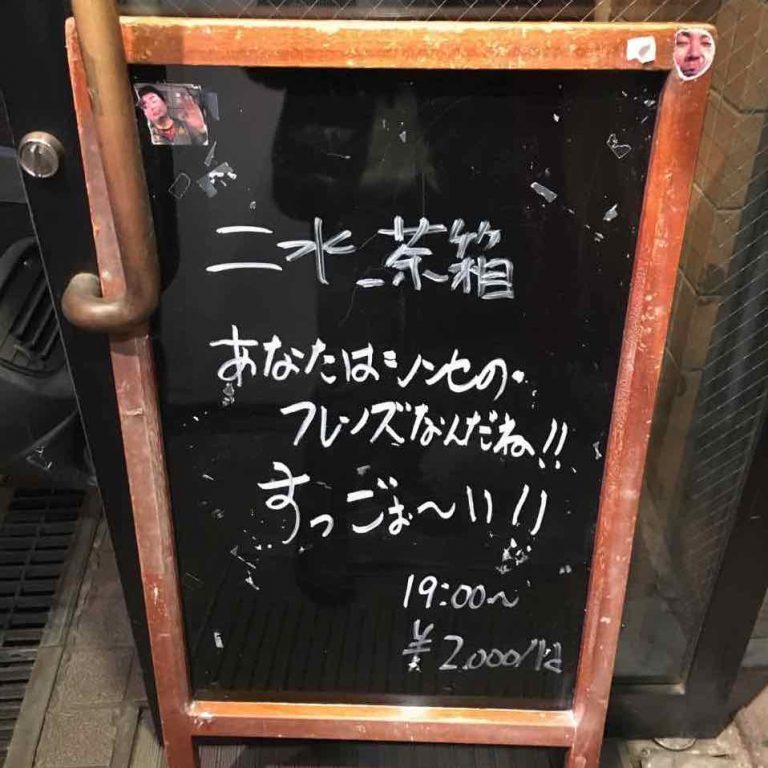 二水_茶箱
あなたはシンセの
フレンズなんだね!!
すっごぉ〜い!!
19:00〜
¥2,000/1d